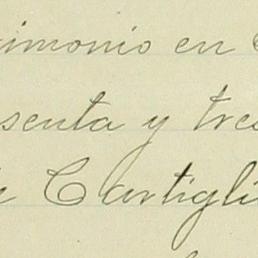 rimonio en
senta y tres
e Cartigli